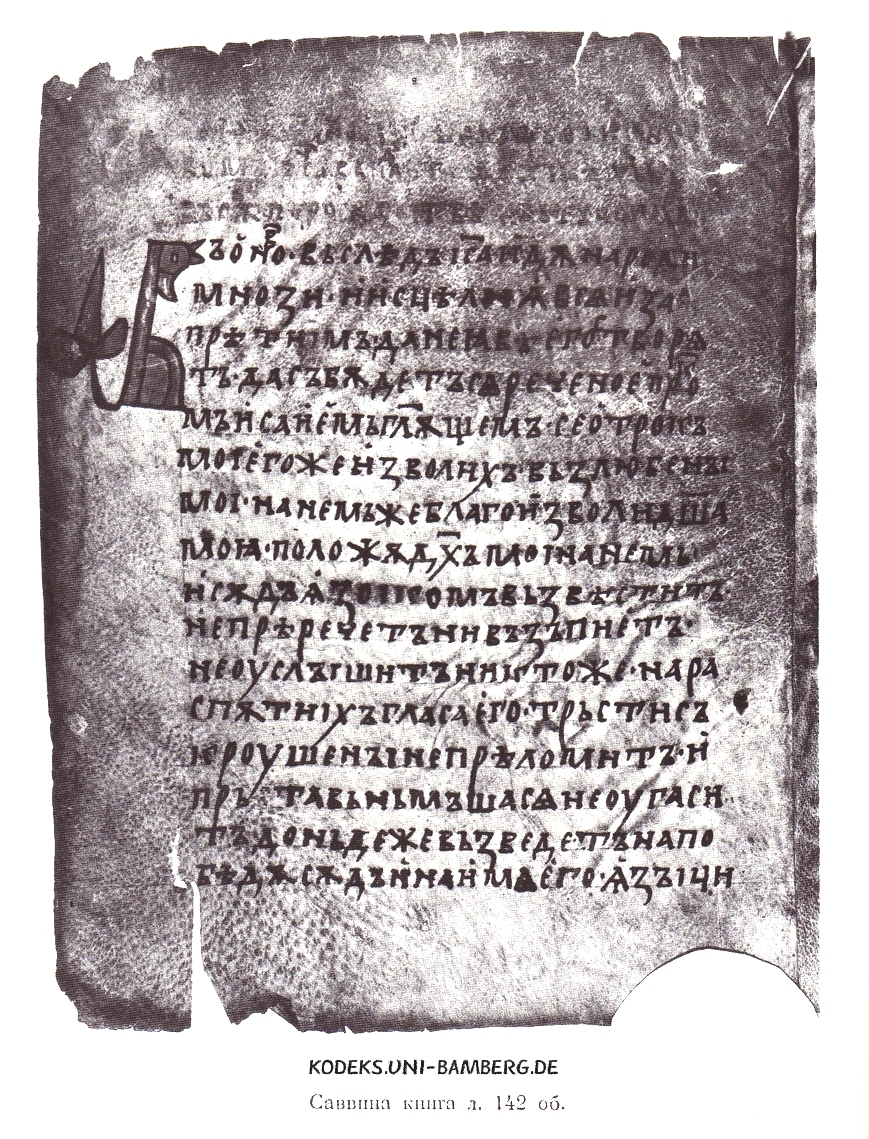 въѡ́но·вьслѣдъ і҃са идѫ народи
мнози·и исцѣли ѩ вьсѧ и за
прѣти имъ да не ꙗвѣ его творѧ
тъ·да събѫдетъ сѧ реченое пр҃ко
мь исаиемь гл҃ѭщемъ·се отрокъ
мои егоже изволихъ вьзлюбены
мои·на немьже благоизволи д҃ша
моꙗ·положѫ д҃хъ мои на немь
и сѫдъ ѩзꙑкомъ вьзвѣститъ·
не прѣречетъ ни възъпиетъ·
не оуслꙑшитъ никтоже·на ра
спѫтиіхъ гласа его·трьсти съ
кроушенꙑ не прѣломитъ·и
пръта вьньмъша сѧ не оугаси
тъ доньдеже вьзведетъ на по
бѣдѫ сѫдъ и на имѧ его·ѩзꙑци
KODEKS.UNI-BAMBERG.DE
Саввина книга л. 142 об.